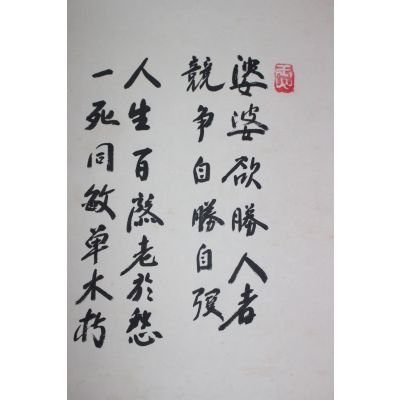 婆婆欲勝人者
競争自勝自强
人生百歲老於愁
一死同敏草木朽